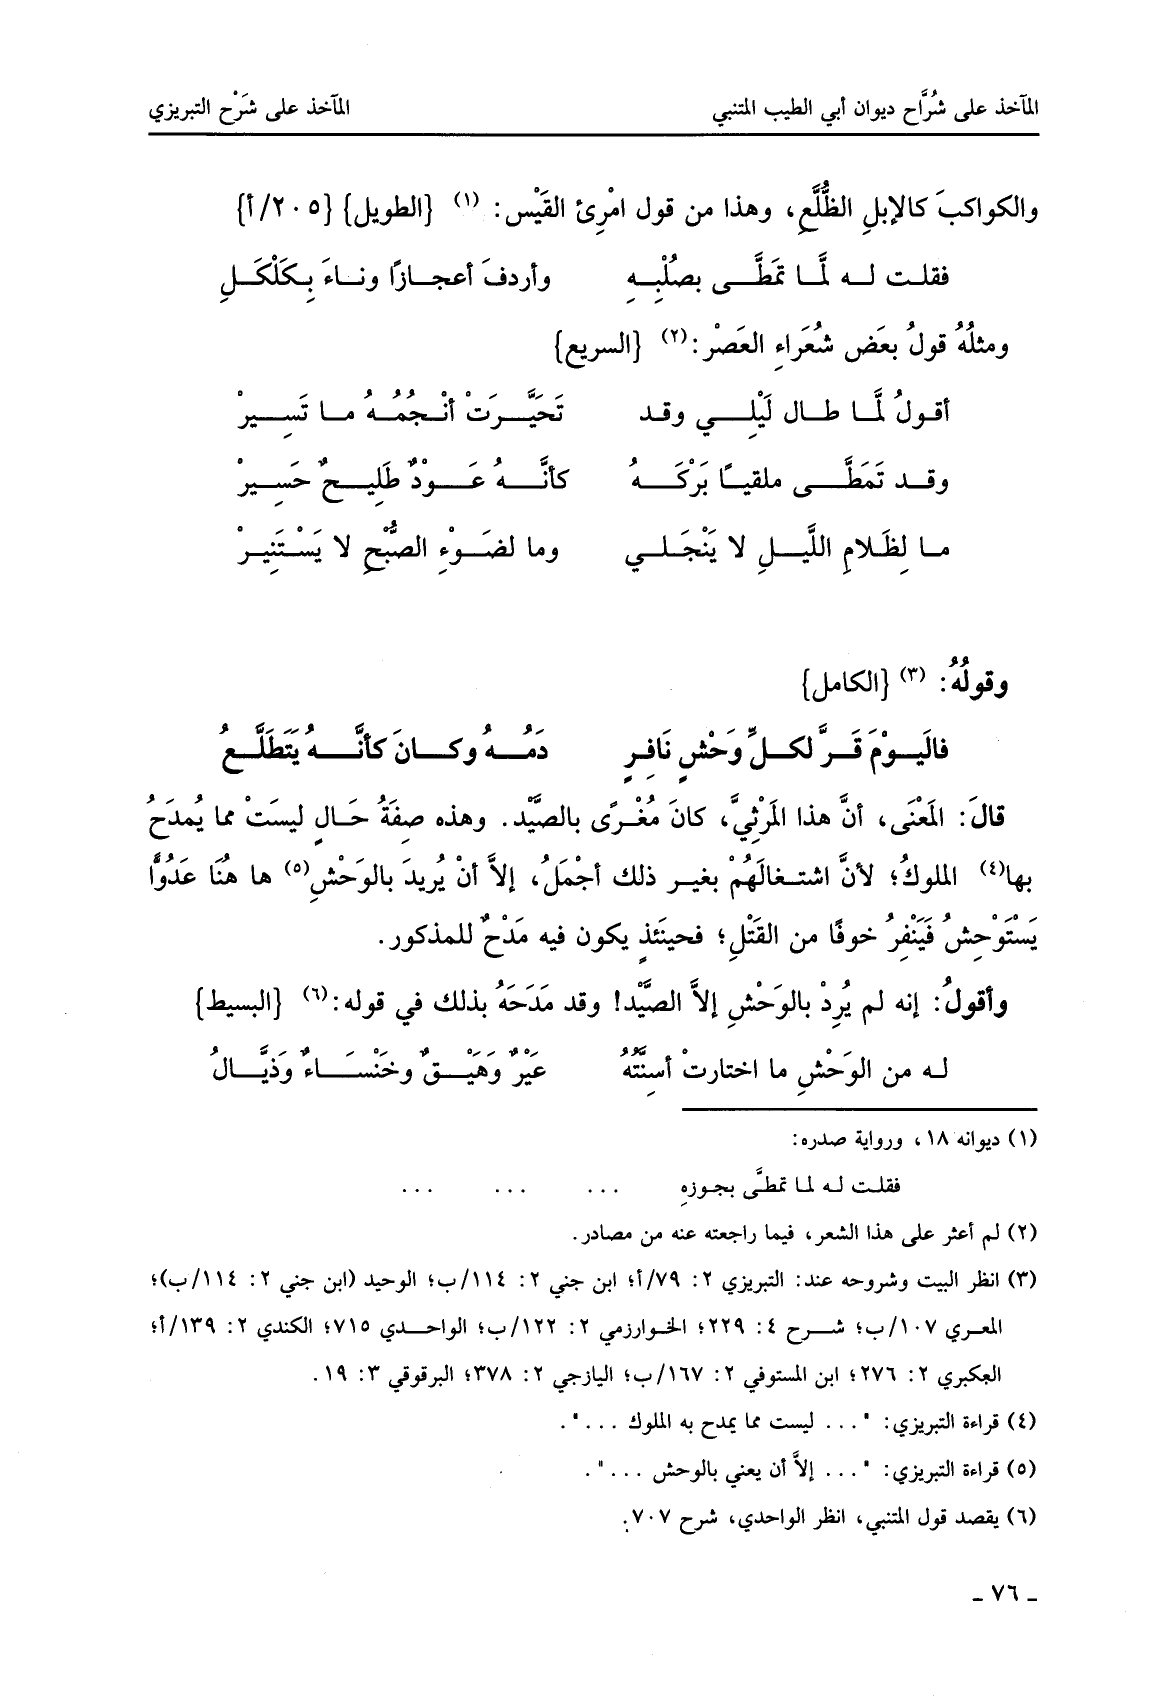 المآخذ على شُرَّاح ديوان أبي الطيب المتنبي المآخذ على شَرْح التبريزي
والكواكبَ كالإبلِ الظُّلَّعِ، وهذا من قول امْرِئ القَيْس: (١) {الطويل} {٢٠٥/أ}
فقلت لــه لمَّــا تمَطَّــى بصُلْبِــهِ وأردفَ أعجــازًا ونــاءَ بِـكَلْكَــلِ
ومثلُهُ قولُ بعَض شُعَراءِ العَصْر: (٢) {السريع}
أقـولُ لمَّــا طـال لَيْلِــي وقـد تَحَيَّــرَتْ أنْـجُمُــهُ مــا تَسِــيرْ
وقــد تَمَطَّــى ملقيـًا بَرْكَــهُ كأنَّــهُ عَــوْدٌ طَلِيــحٌ حَسِــيرْ
مــا لِظَـلامِ الليَّــلِ لا يَنْجَلــي وما لضَـوْءِ الصُّبْحِ لا يَسْــتَنِيــرْ
وقولُهُ: (٣) {الكامل}
فاليَــوْمَ قَــرَّ لكـلِّ وَحْشٍ نَافِـرٍ دَمُــهُ وكــانَ كأنَّــهُ يَتَطَلَّــعُ
قالَ: المَعْنَى، أنَّ هذا المَرْثِيَّ، كانَ مُغْـرًى بالصَّيْد. وهذه صِفَةُ حَـالٍ ليسَتْ مما يُمدَحُ
بها(٤) الملوكُ؛ لأنَّ اشتـغالَهُمْ بغيـر ذلك أجْمَلُ، إلاَّ أنْ يُريدَ بالوَحْشِ(٥) ها هُنَا عَدُوًّا
يَسْتَوْحِشُ فَيَنْفِرُ خوفًا من القَتْلِ؛ فحينَئذٍ يكون فيه مَدْحٌ للمذكور.
وأقولُ: إنه لم يُرِدْ بالوَحْشِ إلاَّ الصَّيْد! وقد مَدَحَهُ بذلك في قوله: (٦) {البسيط}
لـه من الوَحْشِ ما اختارتْ أسِنَّتُهُ عَيْرٌ وَهَيْــقٌ وخَنْسَــاءٌ وَذيَّــالُ
(١) ديوانه ١٨، ورواية صدره:
فقلـت لـه لمـا تمطَّى بجـوزهِ ... ... ...
(٢) لم أعثر على هذا الشعر، فيما راجعته عنه من مصادر.
(٣) انظر البيت وشروحه عند: التبريزي ٢: ٧٩/أ؛ ابن جني ٢: ١١٤/ب؛ الوحيد (ابن جني ٢: ١١٤/ب)؛
المعـري ١٠٧/ب؛ شــرح ٤: ٢٢٩؛ الخـوارزمي ٢: ١٢٢/ب؛ الواحـدي ٧١٥؛ الكندي ٢: ١٣٩/أ؛
العكبري ٢: ٢٧٦؛ ابن المستوفي ٢: ١٦٧/ب؛ اليازجي ٢: ٣٧٨؛ البرقوقي ٣: ١٩.
(٤) قراءة التبريزي: "... ليست مما يمدح به الملوك ...".
(٥) قراءة التبريزي: "... إلاَّ أن يعني بالوحش ...".
(٦) يقصد قول المتنبي، انظر الواحدي، شرح ٧٠٧.
ـ ٧٦ ـ